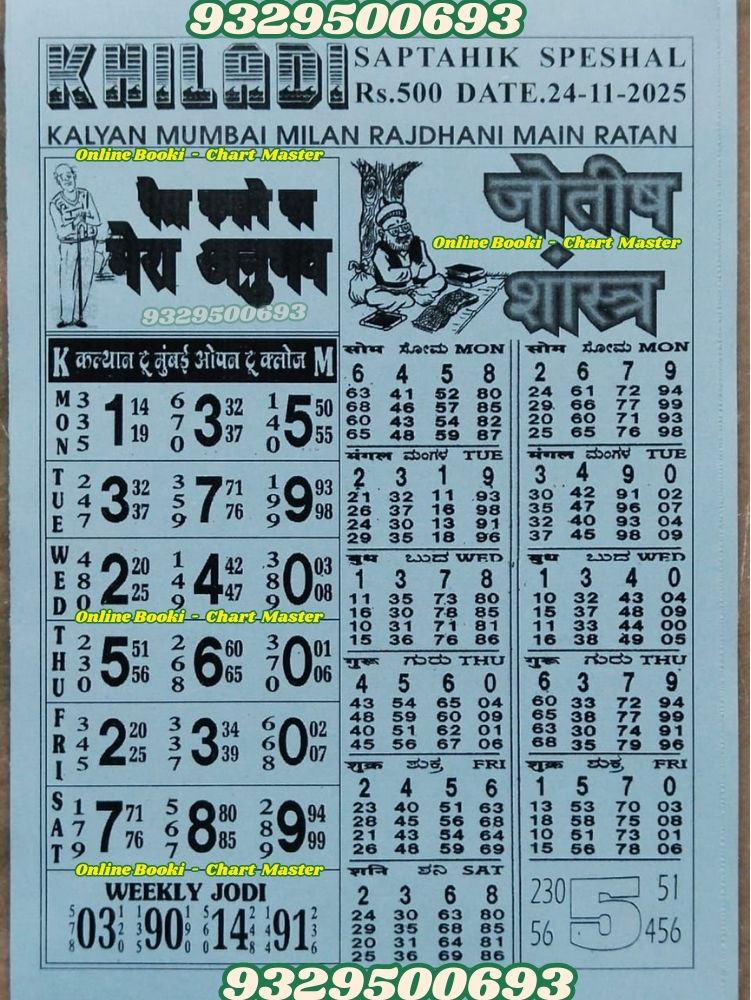 9329500693
KHILADI
SAPTAHIK SPESHAL
Rs.500 DATE.24-11-2025
KALYAN MUMBAI MILAN RAJDHANI MAIN RATAN
Online Booki - Chart Master
पैसा कमाने का
मेरा अनुभव
9329500693
जोतीष
Online Booki - Chart Master
शास्त्र
K कल्यान टू मुंबई ओपन टू क्लोज M
MON 335 1 14 19 670 3 32 37 140 5 50 55
TUE 247 3 32 37 359 7 71 76 199 9 93 98
WED 480 2 20 25 149 4 42 47 389 0 03 08
Online Booki - Chart Master
THU 230 5 51 56 268 6 60 65 370 0 01 06
FRI 345 2 20 25 337 3 34 39 668 0 02 07
SAT 179 7 71 76 567 8 80 85 289 9 94 99
Online Booki - Chart Master
WEEKLY JODI
578 03 120 90 190 560 14 248 144 91 236
सोम ಸೋಮ MON
6 4 5 8
63 41 52 80
68 46 57 85
60 43 54 82
65 48 59 87
मंगल ಮಂಗಳ TUE
2 3 1 9
21 32 11 93
26 37 16 98
24 30 13 91
29 35 18 96
बुध ಬುದ WED
1 3 7 8
11 35 73 80
16 30 78 85
10 31 71 81
15 36 76 86
गुरू ಗುರು THU
4 5 6 0
43 54 65 04
48 59 60 09
40 51 62 01
45 56 67 06
शुक्र ಶುಕ್ರ FRI
2 4 5 6
23 40 51 63
28 45 56 68
21 43 54 64
26 48 59 69
शनि ಶನಿ SAT
2 3 6 8
24 30 63 80
29 35 68 85
20 31 64 81
25 36 69 86
सोम ಸೋಮ MON
2 6 7 9
24 61 72 94
29 66 77 99
20 60 71 93
25 65 76 98
मंगल ಮಂಗಳ TUE
3 4 9 0
30 42 91 02
35 47 96 07
32 40 93 04
37 45 98 09
बुध ಬುದ WED
1 3 4 0
10 32 43 04
15 37 48 09
11 33 44 00
16 38 49 05
गुरू ಗುರು THU
6 3 7 9
60 33 72 94
65 38 77 99
63 30 74 91
68 35 79 96
शुक्र ಶುಕ್ರ FRI
1 5 7 0
13 53 70 03
18 58 75 08
10 51 73 01
15 56 78 06
230 5 51
56 456
9329500693